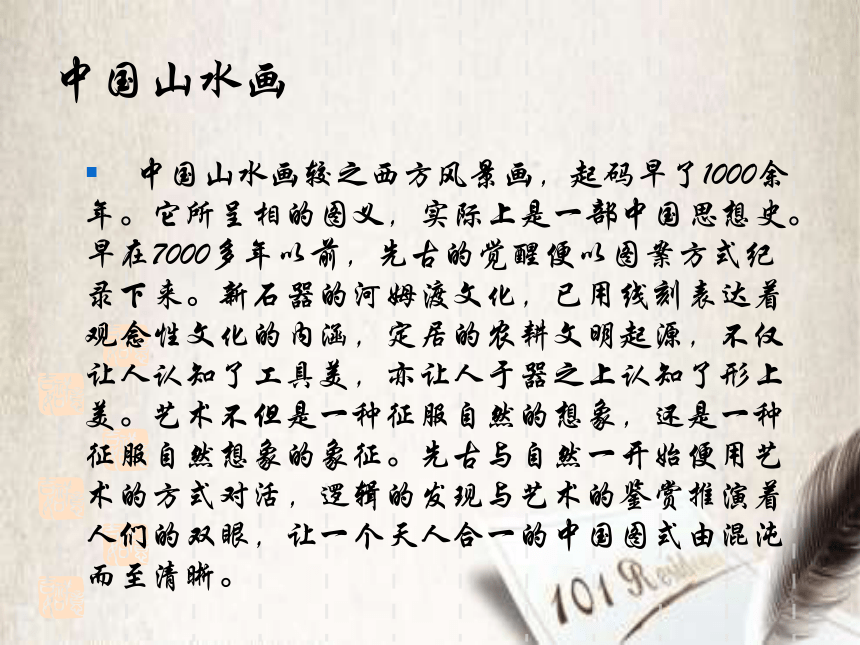 中国山水画
中国山水画较之西方风景画，起码早了1000余
年。它所呈相的图义，实际上是一部中国思想史。
早在7000多年以前，先古的觉醒便以图案方式纪
录下来。新石器的河姆渡文化，已用线刻表达着
观念性文化的内涵，定居的农耕文明起源，不仅
让人认知了工具美，亦让人于器之上认知了形上
美。艺术不但是一种征服自然的想象，还是一种
征服自然想象的象征。先古与自然一开始便用艺
术的方式对活，逻辑的发现与艺术的鉴赏推演着
人们的双眼，让一个天人合一的中国图式由混沌
而至清晰。
101 Reside